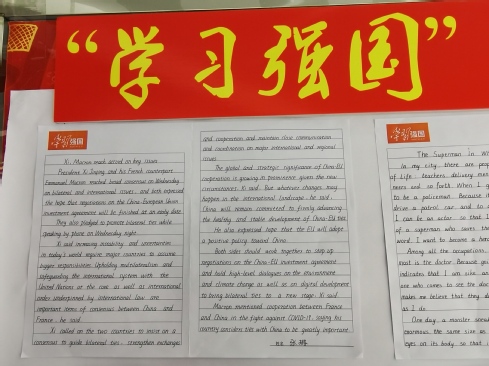 “学习强国”
学习强国
Xi, Macron reach accord on key issues
President Xi Jinping and his French counterpart
Emmanuel Macron reached broad consensus on Wednesday
on bilateral and international issues, and both expressed
the hope that negotiations on the China-European Union
investment agreement will be finished at an early date.
They also pledged to promote bilateral ties while
speaking by phone on Wednesday night.
Xi said increasing instability and uncertainties
in today's world require major countries to assume
bigger responsibilities. Upholding multilateralism and
safeguarding the international system with the
United Nations at the core as well as international
order underpinned by international law are
important items of consensus between China and
France, he said.
Xi called on the two countries to insist on a
consensus to guide bilateral ties, strengthen exchanges
and cooperation and maintain close communication
and coordination on major international and regional
issues.
The global and strategic significance of China-EU
cooperation is growing in prominence given the new
circumstances, Xi said. But whatever changes may
happen in the international landscape, he said,
China will remain committed to firmly advancing
the healthy and stable development of China-EU ties.
He also expressed hope that the EU will adopt
a positive policy toward China.
Both sides should work together to step up
negotiations on the China-EU investment agreement
and hold high-level dialogues on the environment
and climate change as well as on digital development
to bring bilateral ties to a new stage, Xi said.
Macron mentioned cooperation between France
and China in the fight against COVID-19, saying his
country considers ties with China to be greatly important.
学习强国
The Superman in
In my city, there are peop
of life: teachers, delivery men
nurses and so forth. When I g
to be a policeman. Because it
drive a patrol car and to
I can be an actor so that I
of a superman who saves the
world. I want to become a hero
Among all the occupations,
most is the doctor. Because
indicates that I am sick and
one who comes to see the doc
makes me believe that they d
as I do.
One day, a monster
enormous, the same size as
eyes on its body, so that i